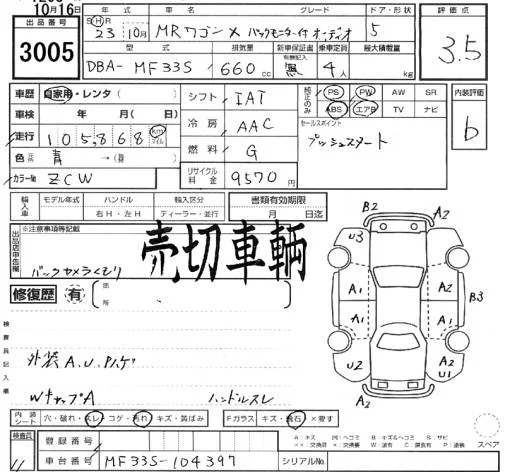 10月16日
出品番号 3005
年式 車名 グレード ドア・形状
S H R 23年 10月 MRワゴン X バックモニター付オーディオ 5
型式 排気量 新車保証書 乗車定員 最大積載量
DBA-MF33S 660cc 有無記入 4人 kg
評価点 3.5
車歴 自家用・レンタ( )
車検 年 月( 日)
走行 105,868 km マイル
色 青 →( )
カラーNo ZCW
シフト IAT
冷房 AAC
燃料 G
リサイクル料金 9570円
純正のみ PS PW AW SR
ABS エアB TV ナビ
セールスポイント
プッシュスタート
内装評価 b
輸入車 モデル年式 ハンドル 輸入区分 書類有効期限
右H・左H ディーラー・並行 月 日迄
出品店申告欄 ※注意事項等記載
バックカメラくもり
売切車輌
修復歴 有
箇所
検査員記入欄
外装A.U.Pハゲ
WキャップA ハンドルスレ
内装シート 穴・破れ・スレ・コゲ・汚れ・キズ・黄ばみ
Fガラス キズ・飛石・×要す
検査員
登録番号
車台番号 MF33S-104397
シリアルNo.
B2 A2
U3 A2
A1 A1
B3
A1 A1
U2 U1
A2
スペア
A:キズ U:ヘコミ B:キズ&ヘコミ S:サビ
×:交換要 ××:交換済 W:波有 C:腐食有 P:塗装